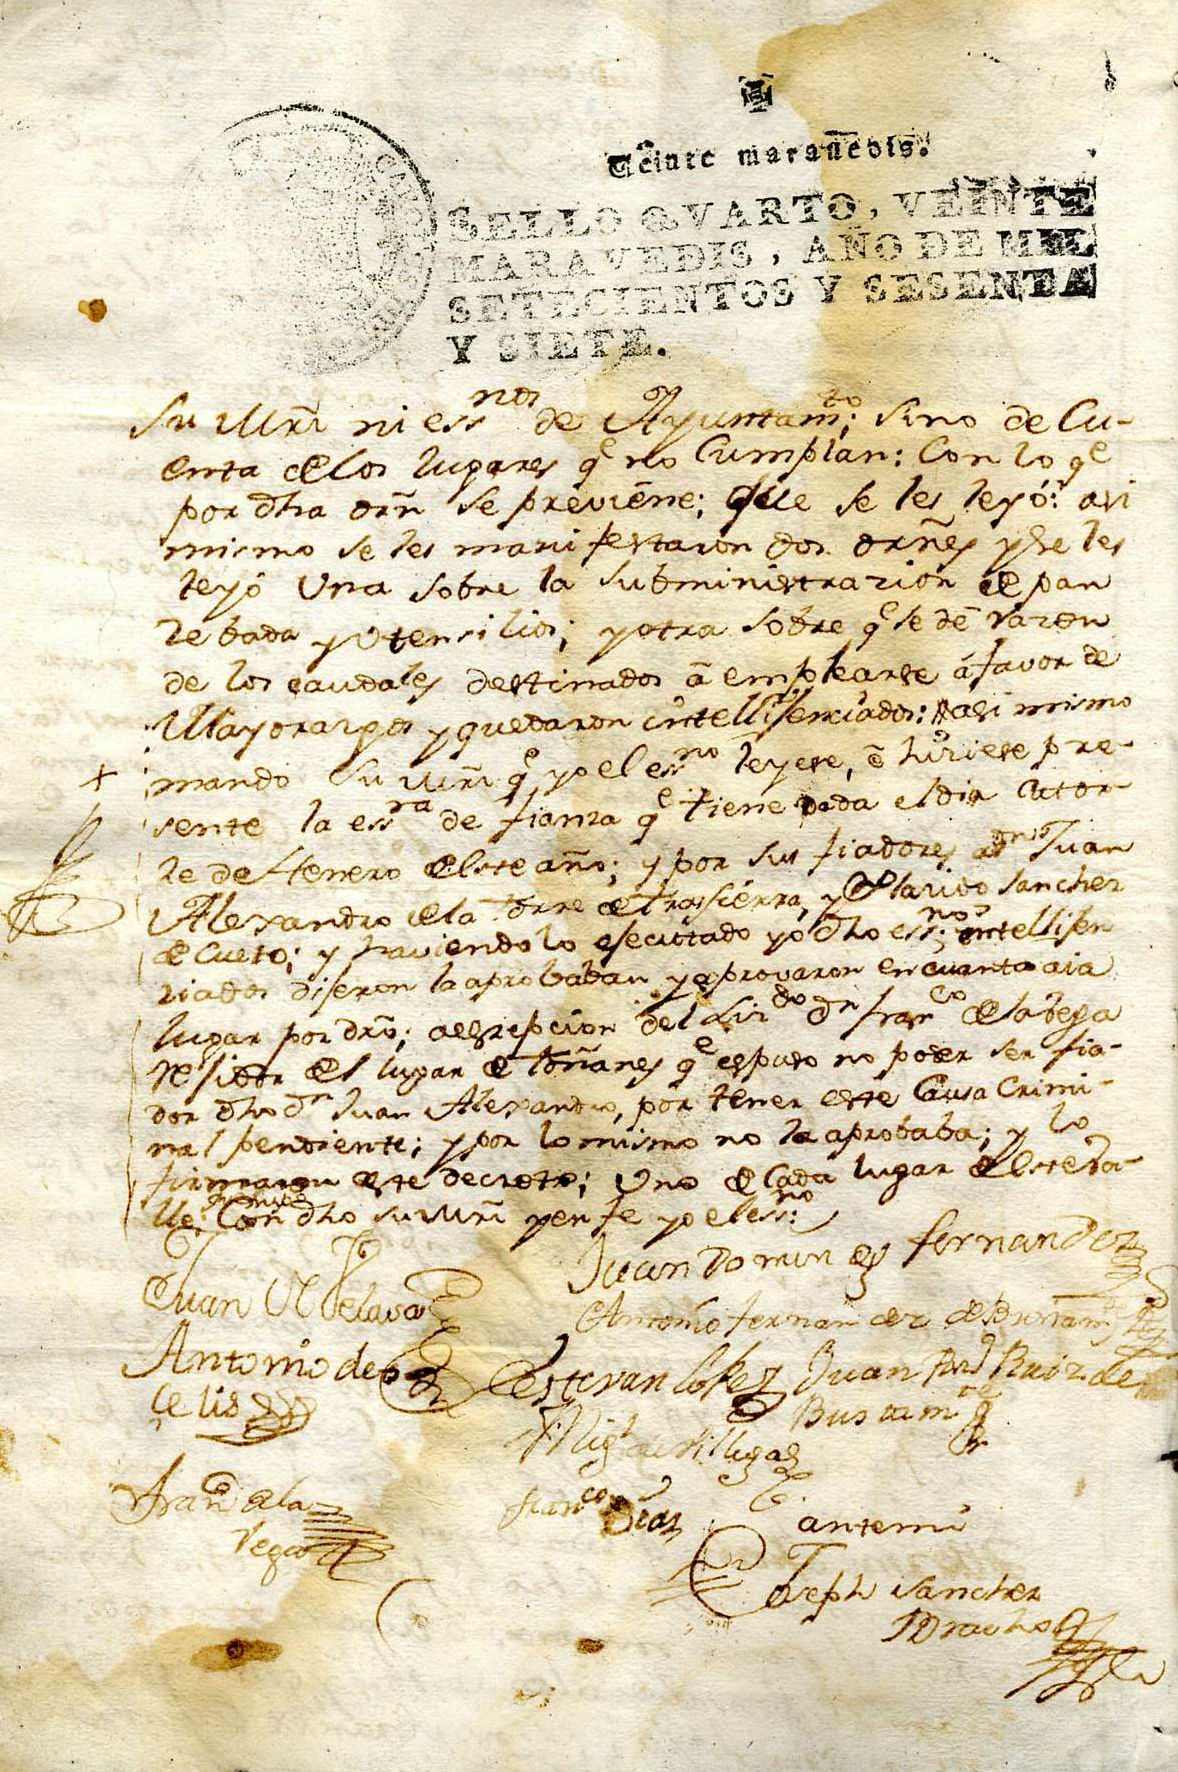 Veinte maravedis.
SELLO QVARTO, VEINTE
MARAVEDIS, AÑO DE MIL
SETECIENTOS Y SESENTA
Y SIETE.
Su Mrd ni essnos de Ayuntamto; sino de Cu-
enta de los lugares qe no Cumplan: Con lo qe
por dha orñ se previene; que se les leyó: asi
mismo se les manifestaron dos orñes y se les
leyó Una sobre la subministrazion de pan
zebada y Utensilios; y otra sobre qe se dé razon
de los caudales destinados á emplearse á favor de
Mayorazgos y quedaron intellisenciados: asi mismo
mando su Mrd qe yo el essno leyese, é hiziese pre-
sente la essra de fianza qe tiene dada el dia Cator-
ze de Henero de este año; y por sus fiadores a dn Juan
Alexandro de la Torre de Trassierra, y Sancher
de Cueto; y haviendolo esecutado yo dho essno: intellisen
ziados dijeron la aprobaban y aprovaron en cuanto aia
lugar por dro; a escepcion del Lizdo dn Franco de la Vega
rejidor del lugar de Toñanes qe espuso no poder ser fia-
dor dho dn Juan Alexandro, por tener este Causa Crimi-
nal pendiente; y por lo mismo no la aprobaba; y lo
firmaron este decreto; Uno de Cada lugar de este Va-
lle; Con dho su Mrd y en fe yo el essno:
Juan Domingz fernandez
Juan Velarde
Antonio fernandez de Bustamte
Antonio de
Celis
Estevan lopez
Juan Ruiz de
Bustamte
Migl de Villegas
Franco de la
Vega
Franco Diaz
ante mi
Joseph Sanchez
Bracho